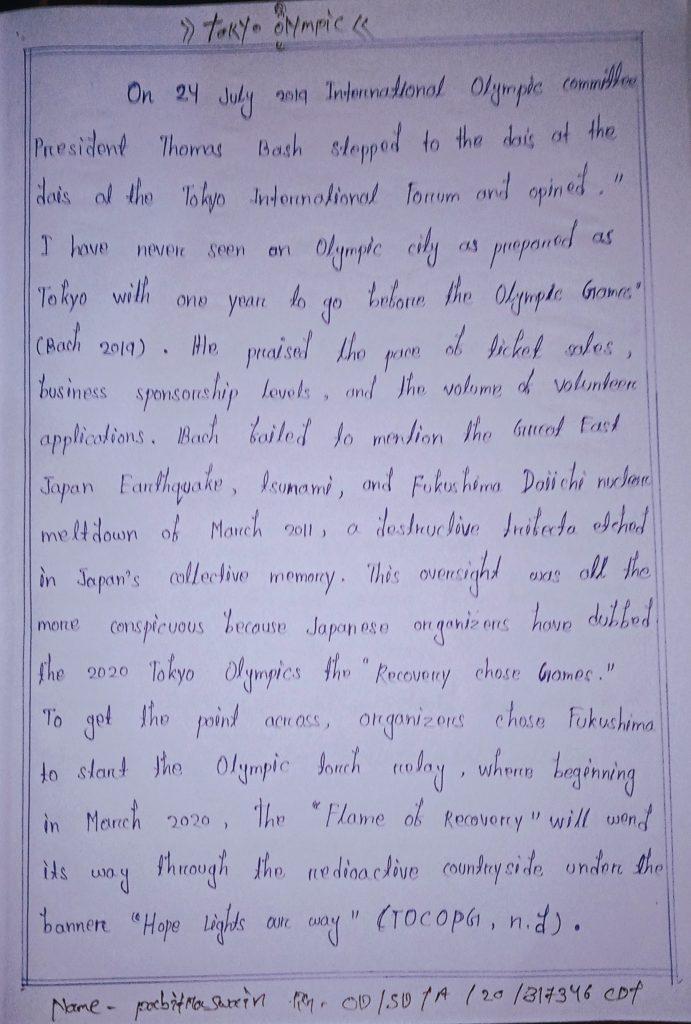 » Tokyo Olympic «
On 24 July 2019 International Olympic committee
President Thomas Bash stepped to the dais at the
dais at the Tokyo International Forum and opined, "
I have never seen an Olympic city as prepared as
Tokyo with one year to go before the Olympic Games"
(Bach 2019). He praised the pace of ticket sales,
business sponsorship levels, and the volume of volunteer
applications. Bach failed to mention the Great East
Japan Earthquake, Tsunami, and Fukushima Daiichi nuclear
meltdown of March 2011, a destructive trifecta etched
in Japan's collective memory. This oversight was all the
more conspicuous because Japanese organizers have dubbed
the 2020 Tokyo Olympics the "Recovery chose Games."
To get the point across, organizers chose Fukushima
to start the Olympic torch relay, where beginning
in March 2020, The "Flame of Recovery" will wend
its way through the redioactive countryside under the
banner "Hope Lights our way" (TOCOPG, n.d).
Name - OD/SD/A/20/317346 CDT